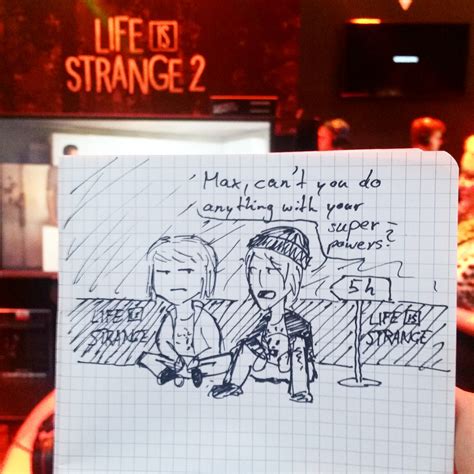 LIFE IS
STRANGE 2
Max, can't you do
anything with your
super-
powers?
5h
LIFE IS
STRANGE
LIFE IS
STRANGE